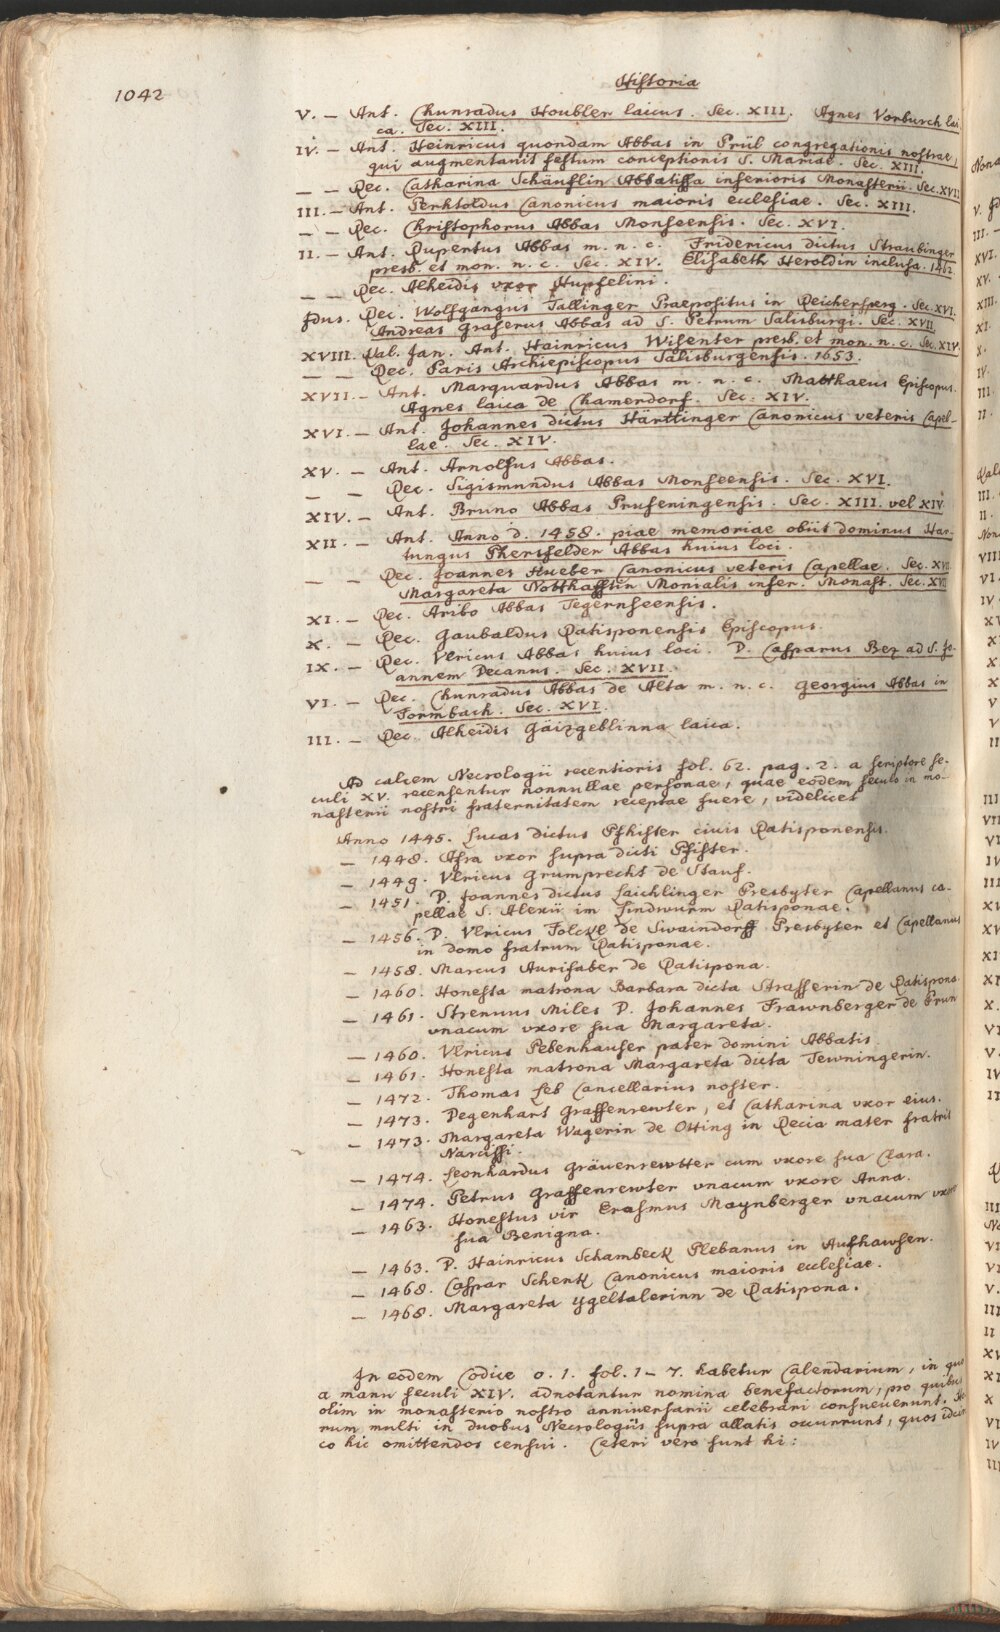 1042
Historia
V. — Ant. Chunradus Houbler laicus. Sec. XIII. Agnes Vorburch lai
ca. Sec. XIII.
IV. — Ant. Heinricus quondam Abbas in Prül congregationis nostrae,
qui augmentavit festum conceptionis S. Mariae. Sec. XIII.
— — Rec. Catharina Schäuflin Abbatissa inferioris Monasterii. Sec. XVII
III. — Ant. Perhtoldus Canonicus maioris ecclesiae. Sec. XIII.
— — Rec. Christophorus Abbas Monseensis. Sec. XVI.
II. — Ant. Rupertus Abbas m. n. c. Fridericus dictus Straubinger
presb. et mon. n. c. Sec. XIV. Elisabeth Heroldin inclusa. 1462
— — Rec. Alheidis vxor Hupfelini.
Idus. Rec. Wolfgangus Tallinger Praepositus in Reichersperg. Sec. XVI.
Andreas Graserus Abbas ad S. Petrum Salisburgi. Sec. XVII.
XVIII. Kal. Jan. Ant. Hainricus Wisenter presb. et mon. n. c. Sec. XIV.
— — Rec. Paris Archiepiscopus Salisburgensis. 1653.
XVII. — Ant. Marquardus Abbas m. n. c. Matthaeus Episcopus.
Agnes laica de Chamerdorf. Sec. XIV.
XVI. — Ant. Johannes dictus Härttinger Canonicus veteris Capel-
lae. Sec. XIV.
XV. — Ant. Arnolfus Abbas.
— — Rec. Sigismundus Abbas Monseensis. Sec. XVI.
XIV. — Ant. Bruno Abbas Pruseningensis. Sec. XIII. vel XIV.
XII. — Ant. Anno d. 1458. piae memoriae obiit dominus Har-
tungus Phersfelder Abbas huius loci.
— — Rec. Joannes Hueber Canonicus veteris Capellae. Sec. XVI
Margareta Notthafftin Monialis infer. Monast. Sec. XVII
XI. — Rec. Aribo Abbas Tegernseensis.
X. — Rec. Gaubaldus Ratisponensis Episcopus.
IX. — Rec. Vlricus Abbas huius loci. D. Casparus Bez ad S. Jo-
annem Decanus. Sec. XVII.
VI. — Rec. Chunradus Abbas de Alta m. n. c. Georgius Abbas in
Formbach. Sec. XVI.
III. — Rec. Alheidis Gäizgeblinna laica.
Ad calcem Necrologii recentioris fol. 62. pag. 2. a scriptore se-
culi XV. recensentur nonnullae personae, quae eodem seculo in mo-
nasterii nostri fraternitatem receptae fuere, videlicet
Anno 1445. Lucas dictus Pfhister civis Ratisponensis.
— 1448. Afra vxor supra dicti Pfister.
— 1449. Vlricus Grumprecht de Stauf.
— 1451. D. Joannes dictus Laichlinger Presbyter Capellanus ca-
pellae S. Alexii im Lindwurm Ratisponae.
— 1456. D. Vlricus Folckl de Swaindorff Presbyter et Capellanus
in domo fratrum Ratisponae.
— 1458. Marcus Aurifaber de Ratispona.
— 1460. Honesta matrona Barbara dicta Strasserin de Ratispona.
— 1461. Strenuus Miles D. Johannes Frawnberger de Prun
vnacum vxore sua Margareta.
— 1460. Vlricus Pebenhauser pater domini Abbatis
— 1461. Honesta matrona Margareta dicta Tewningerin.
— 1472. Thomas Leb Cancellarius noster.
— 1473. Degenhart Graffenrewter, et Catharina vxor eius.
— 1473. Margareta Wagerin de Otting in Recia mater fratris
Narcissi.
— 1474. Leonhardus Grävenrewtter cum vxore sua Clara.
— 1474. Petrus Graffenrewter vnacum vxore Anna.
— 1463. Honestus vir Erasmus Maynberger vnacum vxore
sua Benigna.
— 1463. D. Hainricus Schambeck Plebanus in Aufhawsen.
— 1468. Caspar Schenk Canonicus maioris ecclesiae.
— 1468. Margareta Ygeltalerinn de Ratispona.
In eodem Codice o. 1. fol. 1 – 7. habetur Calendarium, in quo
a manu seculi XIV. adnotantur nomina benefactorum, pro quibus
olim in monasterio nostro anniversarii celebrari consueverunt. Ho
rum multi in duobus Necrologiis supra allatis occurrunt, quos idcir
co hic omittendos censui. Ceteri vero sunt hi: